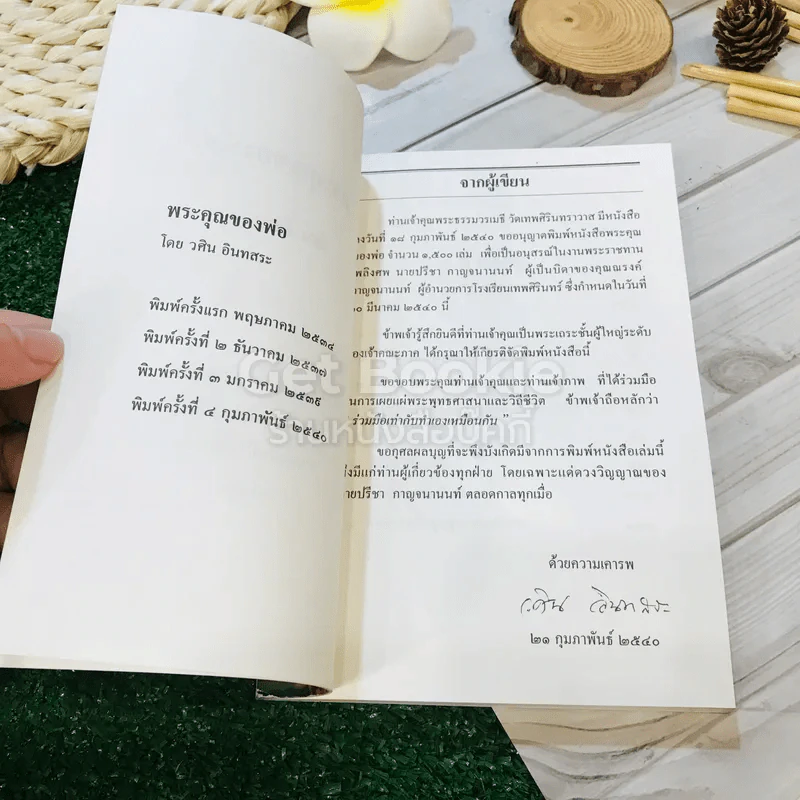 พระคุณของพ่อ
โดย วศิน อินทสระ
พิมพ์ครั้งแรก พฤษภาคม ๒๕๓๔
พิมพ์ครั้งที่ ๒ ธันวาคม ๒๕๓๗
พิมพ์ครั้งที่ ๓ มกราคม ๒๕๓๙
พิมพ์ครั้งที่ ๔ กุมภาพันธ์ ๒๕๔๐
จากผู้เขียน
ท่านเจ้าคุณพระธรรมวรเมธี วัดเทพศิรินทราวาส มีหนังสือ
วันที่ ๑๘ กุมภาพันธ์ ๒๕๔๐ ขออนุญาตพิมพ์หนังสือพระคุณ
ของพ่อ จำนวน ๑,๕๐๐ เล่ม เพื่อเป็นอนุสรณ์ในงานพระราชทาน
เพลิงศพ นายปรีชา กาญจนานนท์ ผู้เป็นบิดาของคุณณรงค์
กาญจนานนท์ ผู้อำนวยการโรงเรียนเทพศิรินทร์ ซึ่งกำหนดในวันที่
มีนาคม ๒๕๔๐ นี้
ข้าพเจ้ารู้สึกยินดีที่ท่านเจ้าคุณเป็นพระเถระชั้นผู้ใหญ่ระดับ
รองเจ้าคณะภาค ได้กรุณาให้เกียรติจัดพิมพ์หนังสือนี้
ขอขอบพระคุณท่านเจ้าคุณและท่านเจ้าภาพ ที่ได้ร่วมมือ
ในการเผยแผ่พระพุทธศาสนาและวิถีชีวิต ข้าพเจ้าถือหลักว่า
ร่วมมือเท่ากับทำเองเหมือนกัน ”
ขอกุศลผลบุญที่จะพึงบังเกิดมีจากการพิมพ์หนังสือเล่มนี้
จงมีแก่ท่านผู้เกี่ยวข้องทุกฝ่าย โดยเฉพาะแด่ดวงวิญญาณของ
นายปรีชา กาญจนานนท์ ตลอดกาลทุกเมื่อ
ด้วยความเคารพ
วศิน อินทสระ
๒๑ กุมภาพันธ์ ๒๕๔๐
Get Bookie
ร้านหนังสือบุ๊คกี้